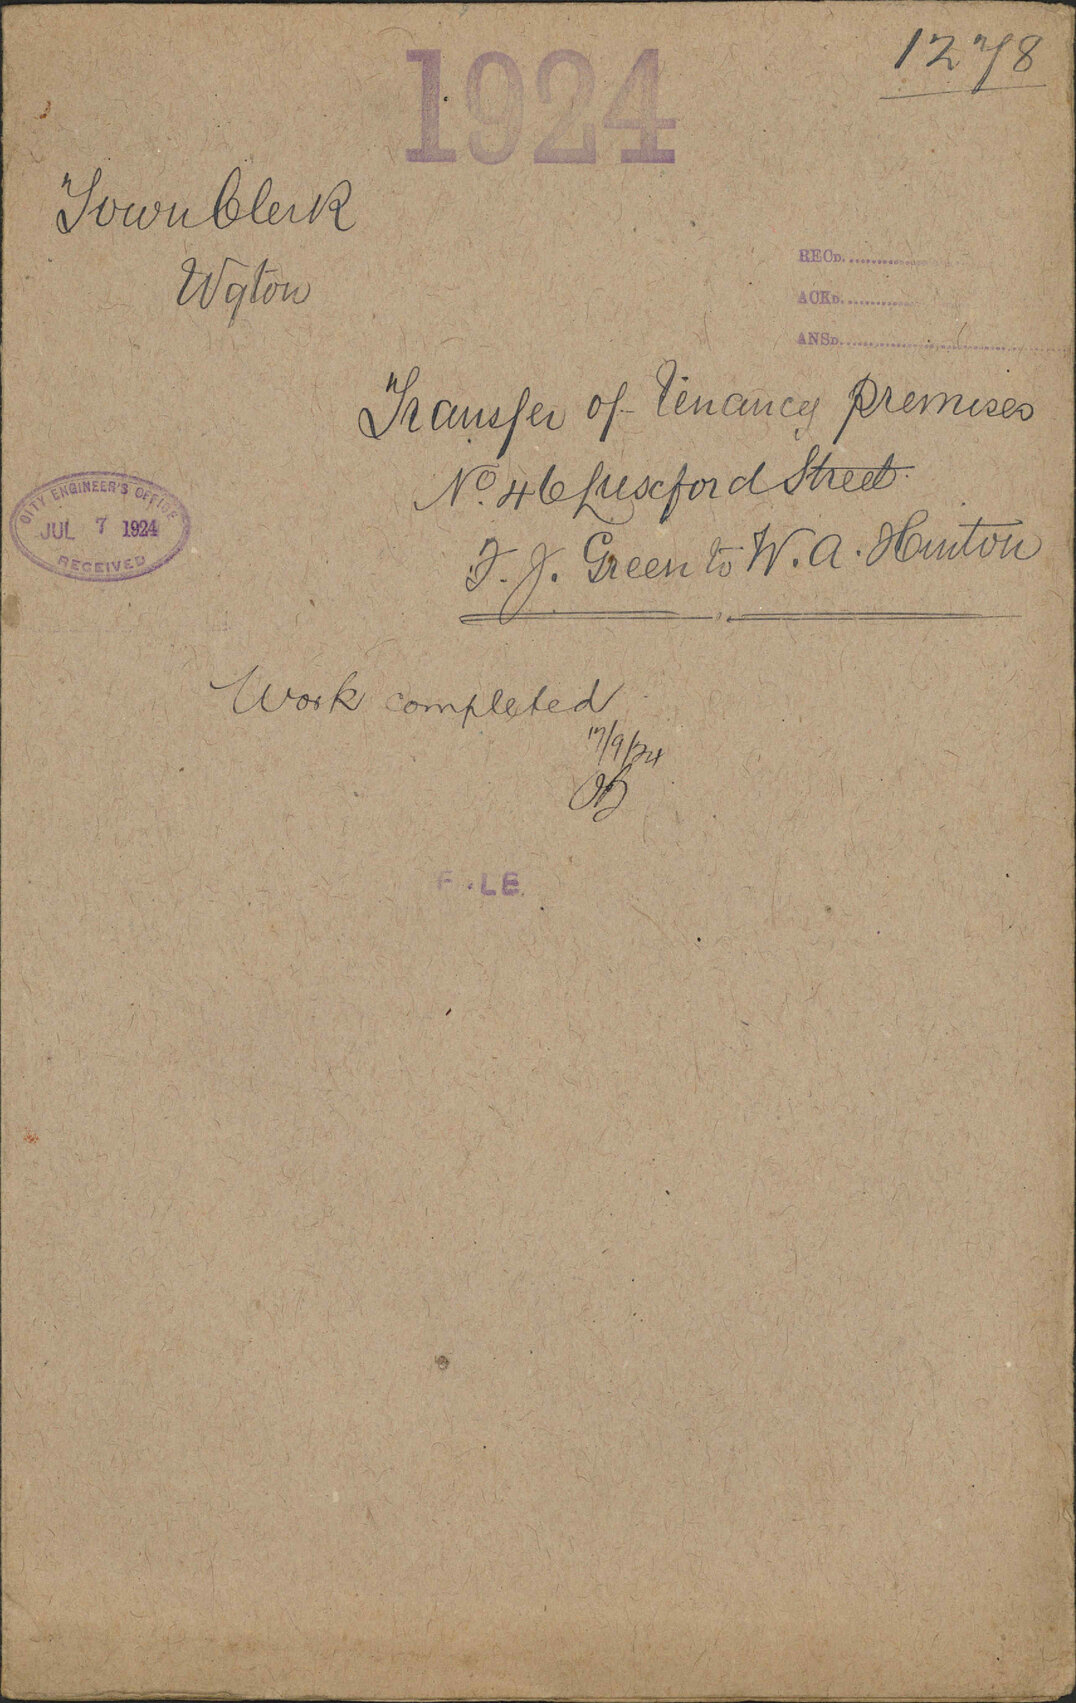 1278
1924
Town Clerk
Wgton
RECD.
ACKD.
ANSD.
Transfer of Tenancy premises
No. 46 Luxford Street
F. J. Green to W. A. Hinton
CITY ENGINEER'S OFFICE
JUL 7 1924
RECEIVED
Work completed
17/9/24